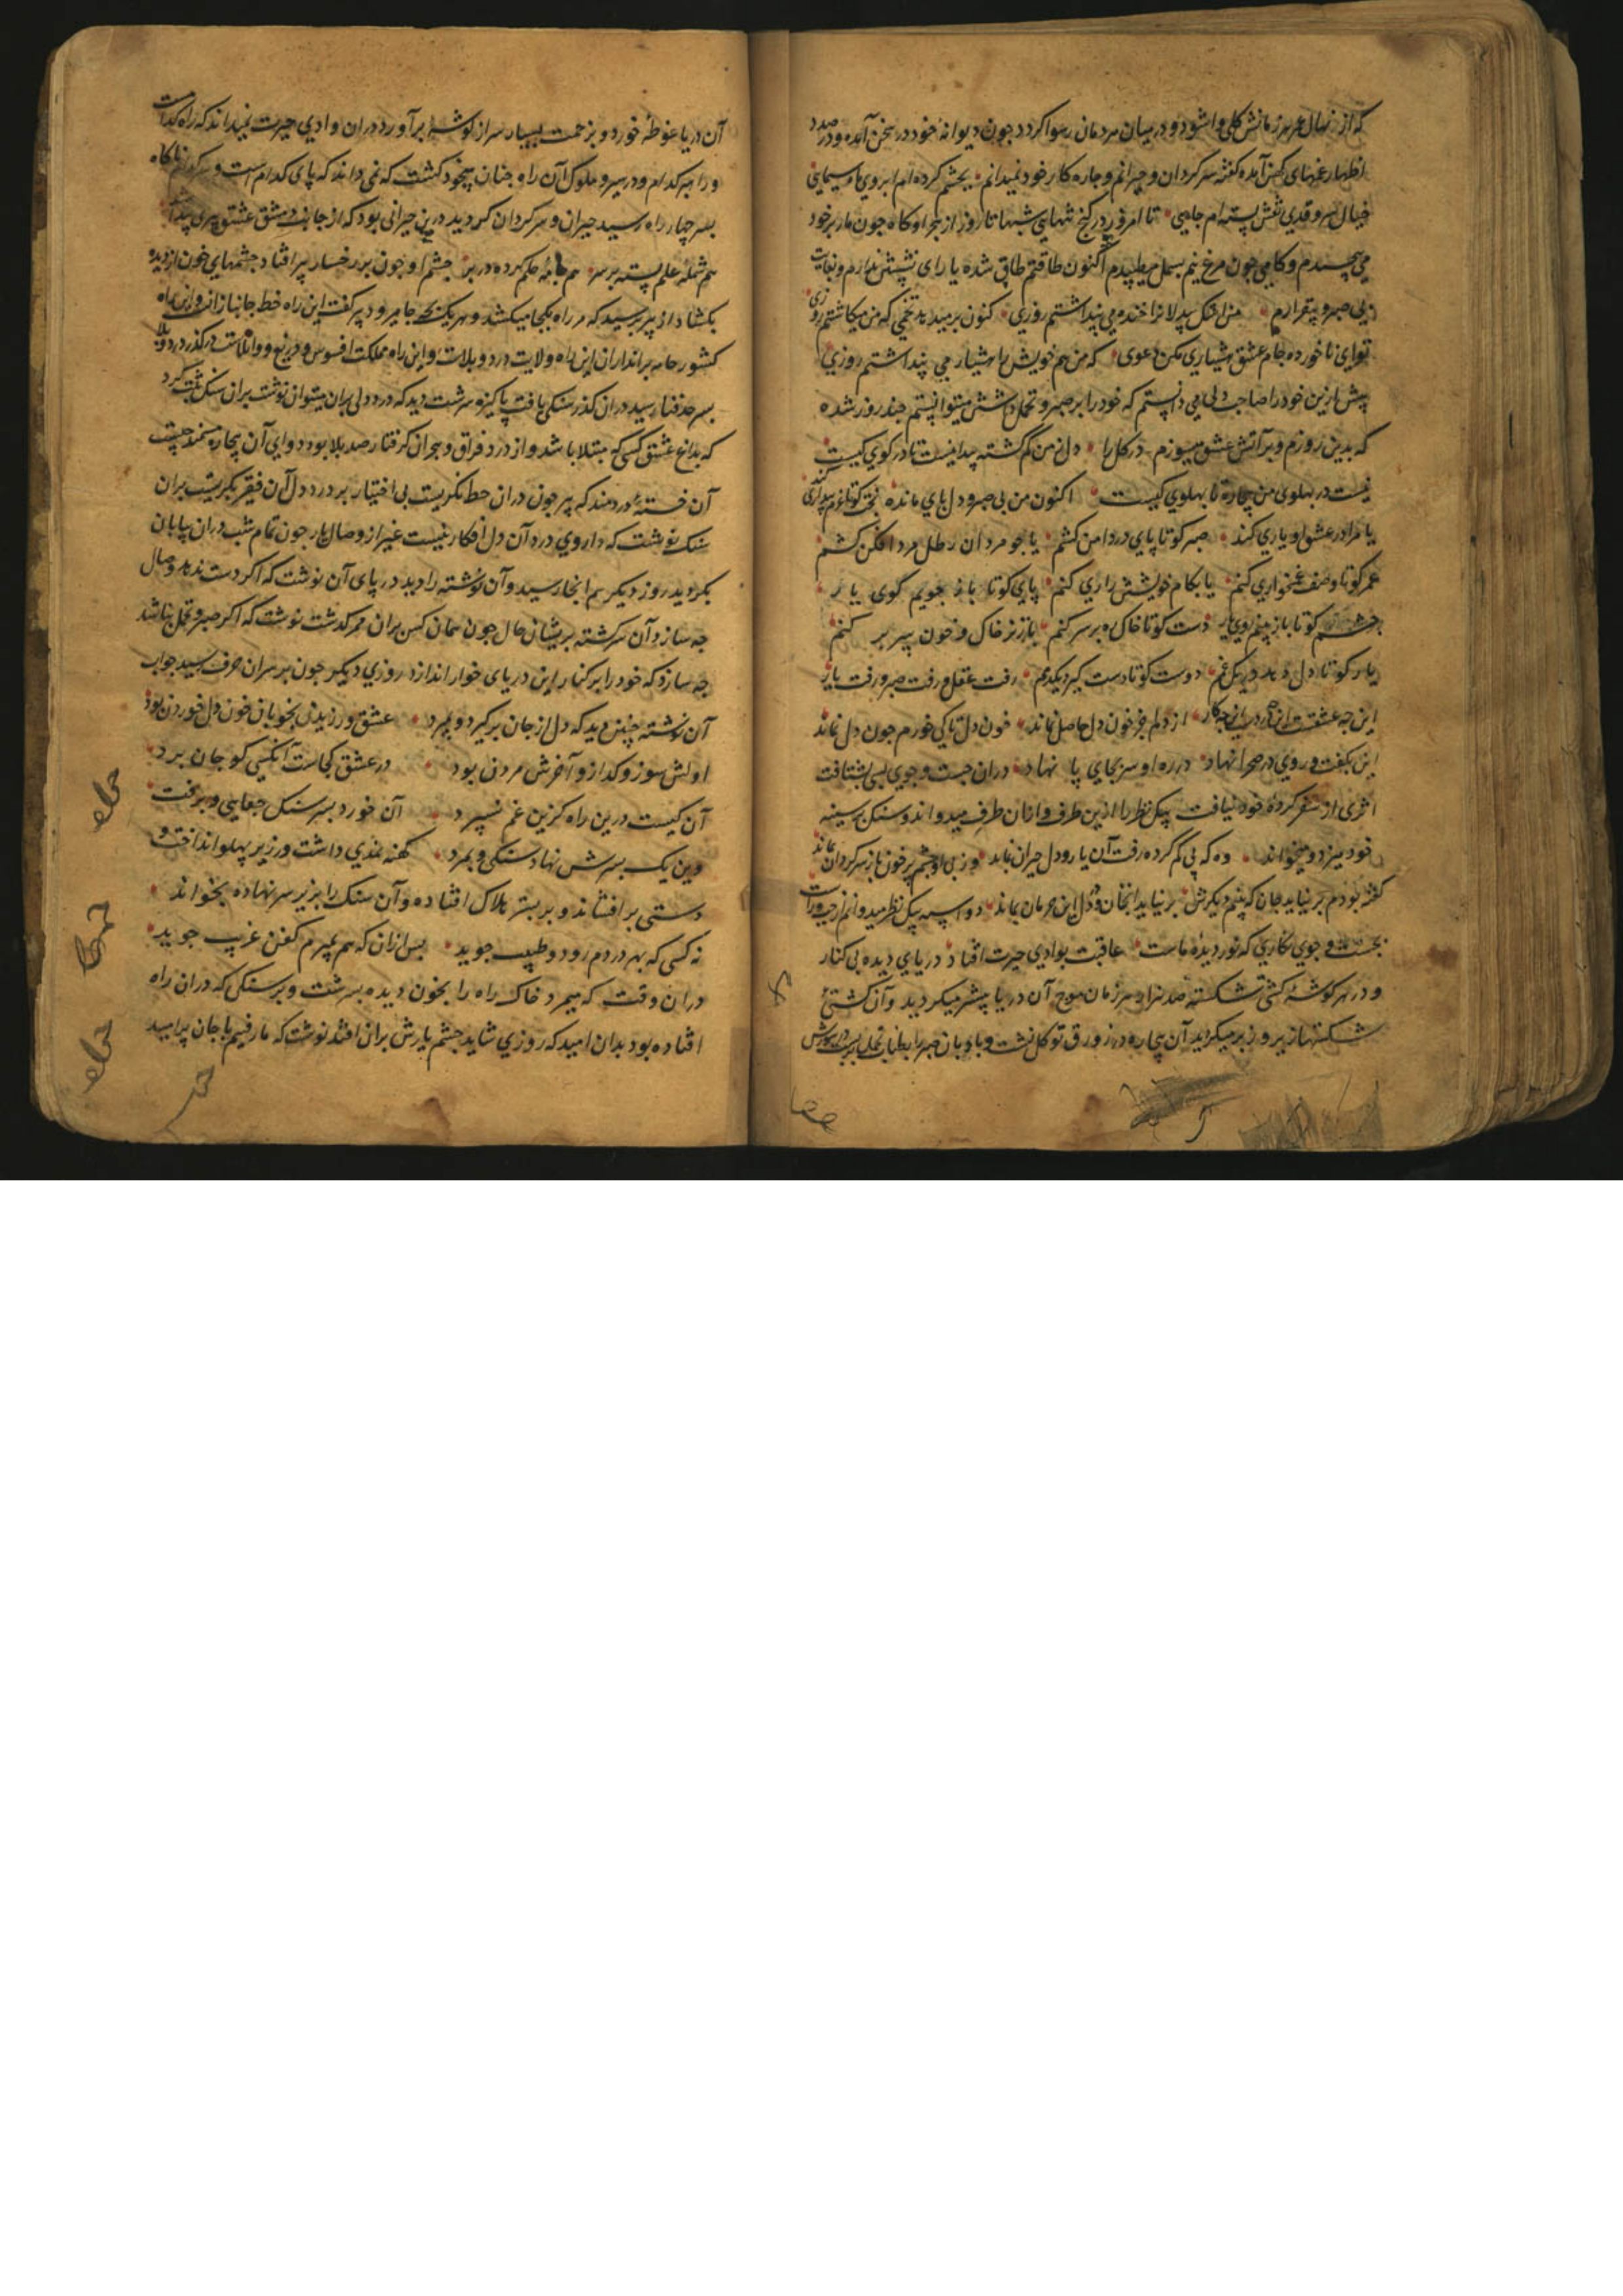 که از نهال عمر هر زمانش کلی وا شود و در میان مردمان رسوا کردد جون دیوانهٔ خود در سخن آمده و در صدد
اظهار غمهای کهن آمده کفت سرکردان و حیرانم و جاره کار خود نمیدانم بجشم کرده ام ابروی ماه سیمایی
خیال سرو قدی نقش بسته ام جایی تا امروز در کنج تنهایی شبها تا روز از هجر او کاه جون مار بر خود
می پیجیدم و کاهی جون مرغ نیم بسمل میطپیدم اکنون طاقتم طاق شده یارای نشستن ندارم و بغایت
بی صبر و بیقرارم من اشک بیدلانرا خنده می پنداشتم روزی کنون بر میدهد تخمی که من میکاشتم روزی
تو ای ناخورده جام عشق هشیاری مکن دعوی که من هم خویش را هشیار می پنداشتم روزی
پیش ازین خود را صاحب دلی می دانستم که خود را بر صبر و تحمل داشتن میتوانستم جند روز شده
که بدین روزم و بر آتش عشق میسوزم در کل را دل من کم کشته پیدا نیست تا در کوی کیست
نیست در بهلوی من بیچاره تا بهلوی کیست اکنون من بی صبر و دل بجای مانده بخت کو تا عزم بیداری کند
یا مرا در عشق او یاری کند صبر کو تا پای در دامن کشم یا جو مردان رطل مرد افکن کشم
عمر کو تا وصف غمخواری کنم یا بکام خویشتن زاری کنم پای کو تا باز جویم کوی یار
جشم کو تا باز بینم روی یار دست کو تا خاک ره بر سر کنم یا ز زیر خاک و خون سر بر کنم
یار کو تا دل دهد در یک غم دوست کو تا دست کیرد یکدم رفت عقل و رفت صبر و رفت یار
این جه عشقست این جه دردست این جه کار از دلم جز خون دل حاصل نماند خون دل تا کی خورم جون دل نماند
این بکفت و روی در صحرا نهاد در ره او سر بجای پا نهاد در آن جست و جوی بسی بشتافت
اثری از سفر کرده خود نیافت پیک نظر را ازین طرف و از آن طرف میدواند و سنک بر سینه
خود میزد و میخواند وه که پی کم کرده رفت آن یار و دل حیران بماند وز پی او جشم پر خون باز سرکردان بماند
کفته بودم بر نیاید جان که بینم دیکرش بر نیامد آنجنان و در دل این حرمان بماند دو اسبه پیک نظر میدوانم از جپ و راست
بجست و جوی نکاری که نور دیدهٔ ماست عاقبت بوادی حیرت افتاد دریای دیده بی کنار
و در هر کوشهٔ کشتی شکسته صد هزار هر زمان موج آن دریا بیشتر میکردید و آن کشتی
شکستها زیر و زبر میکردید آن بیچاره در زورق توکل نشست و بادبان صبر را بطناب تحمل
آن دریا غوطه خورد و بزحمت بسیار سر از کوشه بر آورد در آن وادی حیرت نمیداند که راه کدامست
و راهبر کدام و در سیر و سلوک آن راه جنان بیخود کشت که نمی داند که پای کدام است و سر کدام ناکاه
بسر چهار راه رسید حیران و سرکردان کردید درین حیرانی بود که از جانب دمشق عشق پیری پیدا شد
هم شملهٔ علم بسته بر سر هم جامهٔ حلم کرده در بر جشم او جون بر رخسار پیر افتاد جشمهای خون از دیده
بکشاد از پیر پرسید که هر راه بکجا میکشد و هر یک بجه جا میرود پیر کفت این راه خط جانبازانست و این راه
کشور خانه براندازان این راه ولایت درد و بلاست و این راه مملکت افسوس و دریغ و واویلاست در کذر درد و بلا
بسرحد فنا رسید در آن کذر سنکی یافت پاکیزه سرشت دید که درد دلی بر آن میتوان نوشت بر آن سنک ثبت کرد
که بداغ عشق کسی که مبتلا باشد و از درد فراق و هجران کرفتار صد بلا بود دوای آن بیچاره مستمند چیست
آن خستهٔ دردمند که پیر جون در آن خط نکریست بی اختیار بر درد دل آن فقیر بکریست بر آن
سنک نوشت که داروی درد آن دل افکار نیست غیر از وصال یار جون تمام شب در آن بیابان
بکردید روز دیکر هم آنجا رسید و آن نوشته را دید در پای آن نوشت که اکر دست ندهد وصال
جه سازد آن سرکشته بریشان حال جون همان کس بر آن ممر کذشت نوشت که اکر صبر و تحمل نباشد
جه سازد که خود را بر کنار این دریای خوار اندازد روزی دیکر جون بر سر آن حرف رسید جواب
آن نوشته چنین دید که دل از جان برکیرد و بمیرد عشق ورزیدن بخوبان خون دل خوردن بود
اولش سوز و کداز و آخرش مردن بود در عشق کجاست آنکسی کو جان برد
آن کیست درین راه کزین غم نسپرد آن خورد بسر سنک جفایی و برفت
وین یک بسرش نهاد سنکی و بمرد کهنه نمدی داشت و زیر پهلو انداخت و
دستی بر افشاند و بر بستر هلاک افتاده و آن سنک را بزیر سر نهاده بخواند
نه کسی که بهر دردم رود و طبیب جوید پس از آن که هم بمیرم کفن غریب جوید
در آن وقت که میمرد خاک راه را بخون دیده بسرشت و بر سنکی که در آن راه
افتاده بود بدان امید که روزی شاید جشم یارش بر آن افتد نوشت که ما رفتیم با جان پر امید